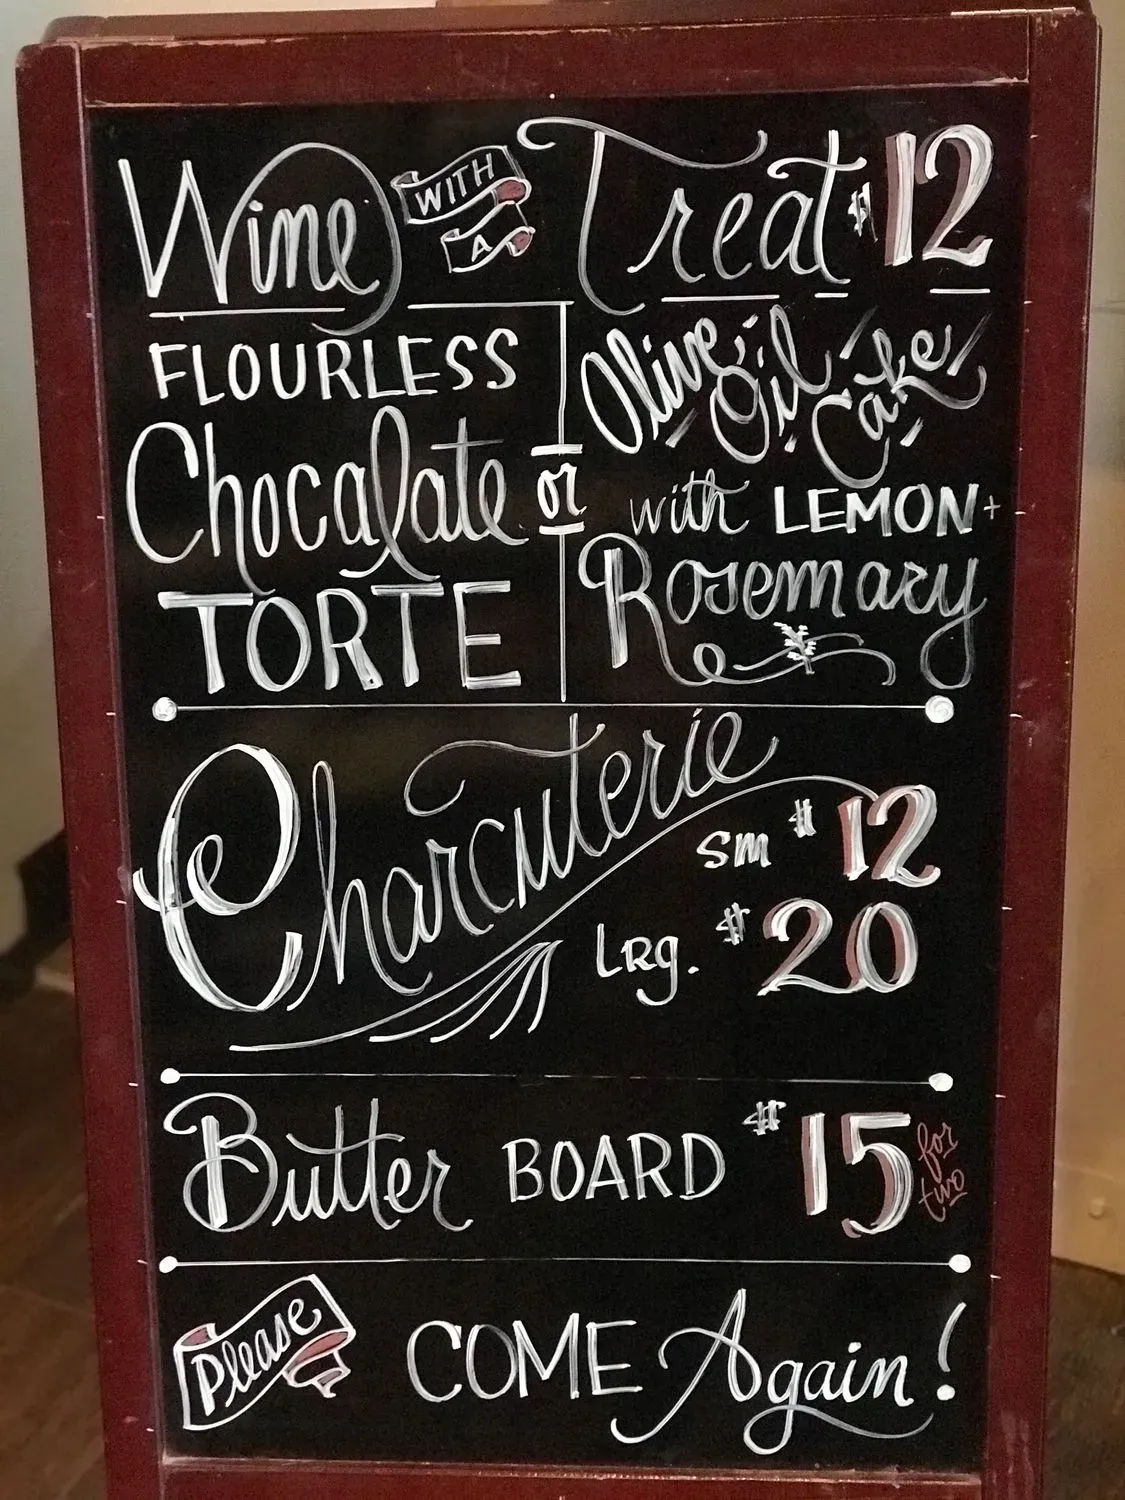 Wine WITH A Treat $12
FLOURLESS
Chocolate
TORTE
or
Olive Oil Cake
with LEMON +
Rosemary
Charcuterie
sm $12
LRg. $20
Butter BOARD $15 for two
Please COME Again!